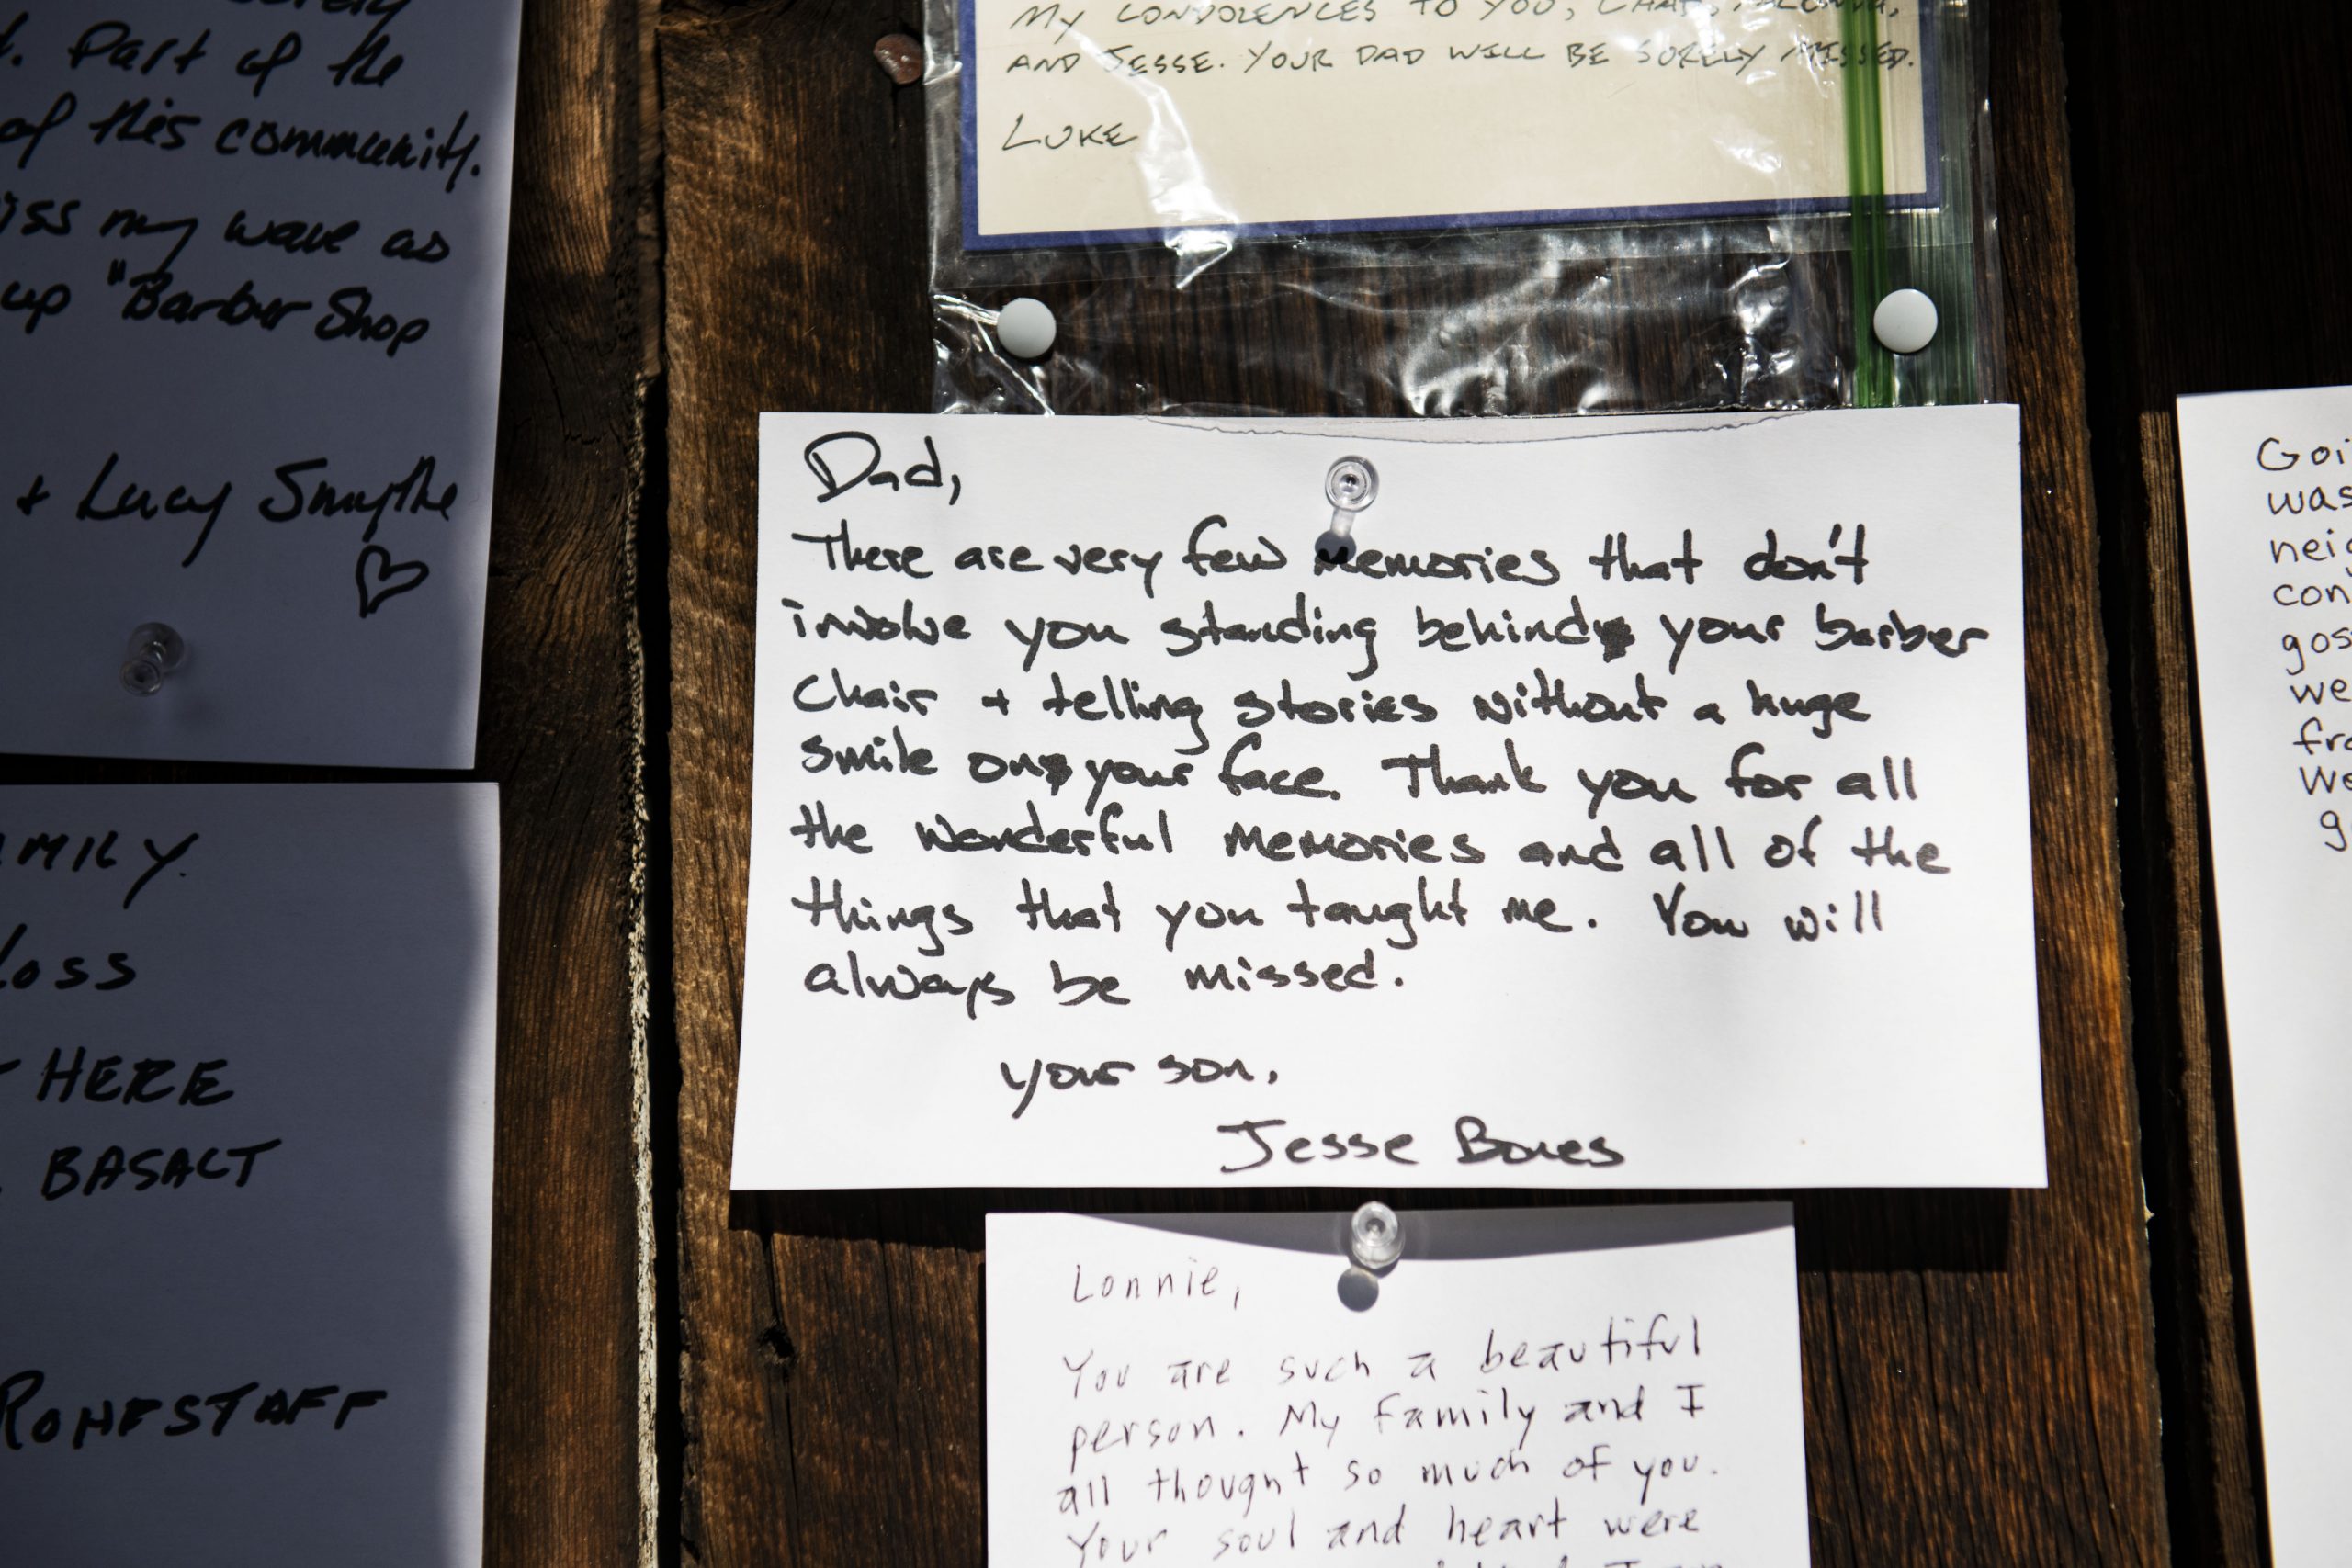 . Part of the
of this community.
my wave as
up "Barber Shop
+ Lucy Smythe
loss
HERE
BASALT
MY CONDOLENCES TO YOU,
AND JESSE. YOUR DAD WILL BE SORELY MISSED.
LUKE
Dad,
There are very few memories that don't
involve you standing behind your barber
chair + telling stories without a huge
smile on your face. Thank you for all
the wonderful memories and all of the
things that you taught me. You will
always be missed.
your son,
Jesse Boues
Lonnie,
You are such a beautiful
person. My family and I
all thought so much of you.
Your soul and heart were
Goi
was
neig
con
gos
we
fro
We
g